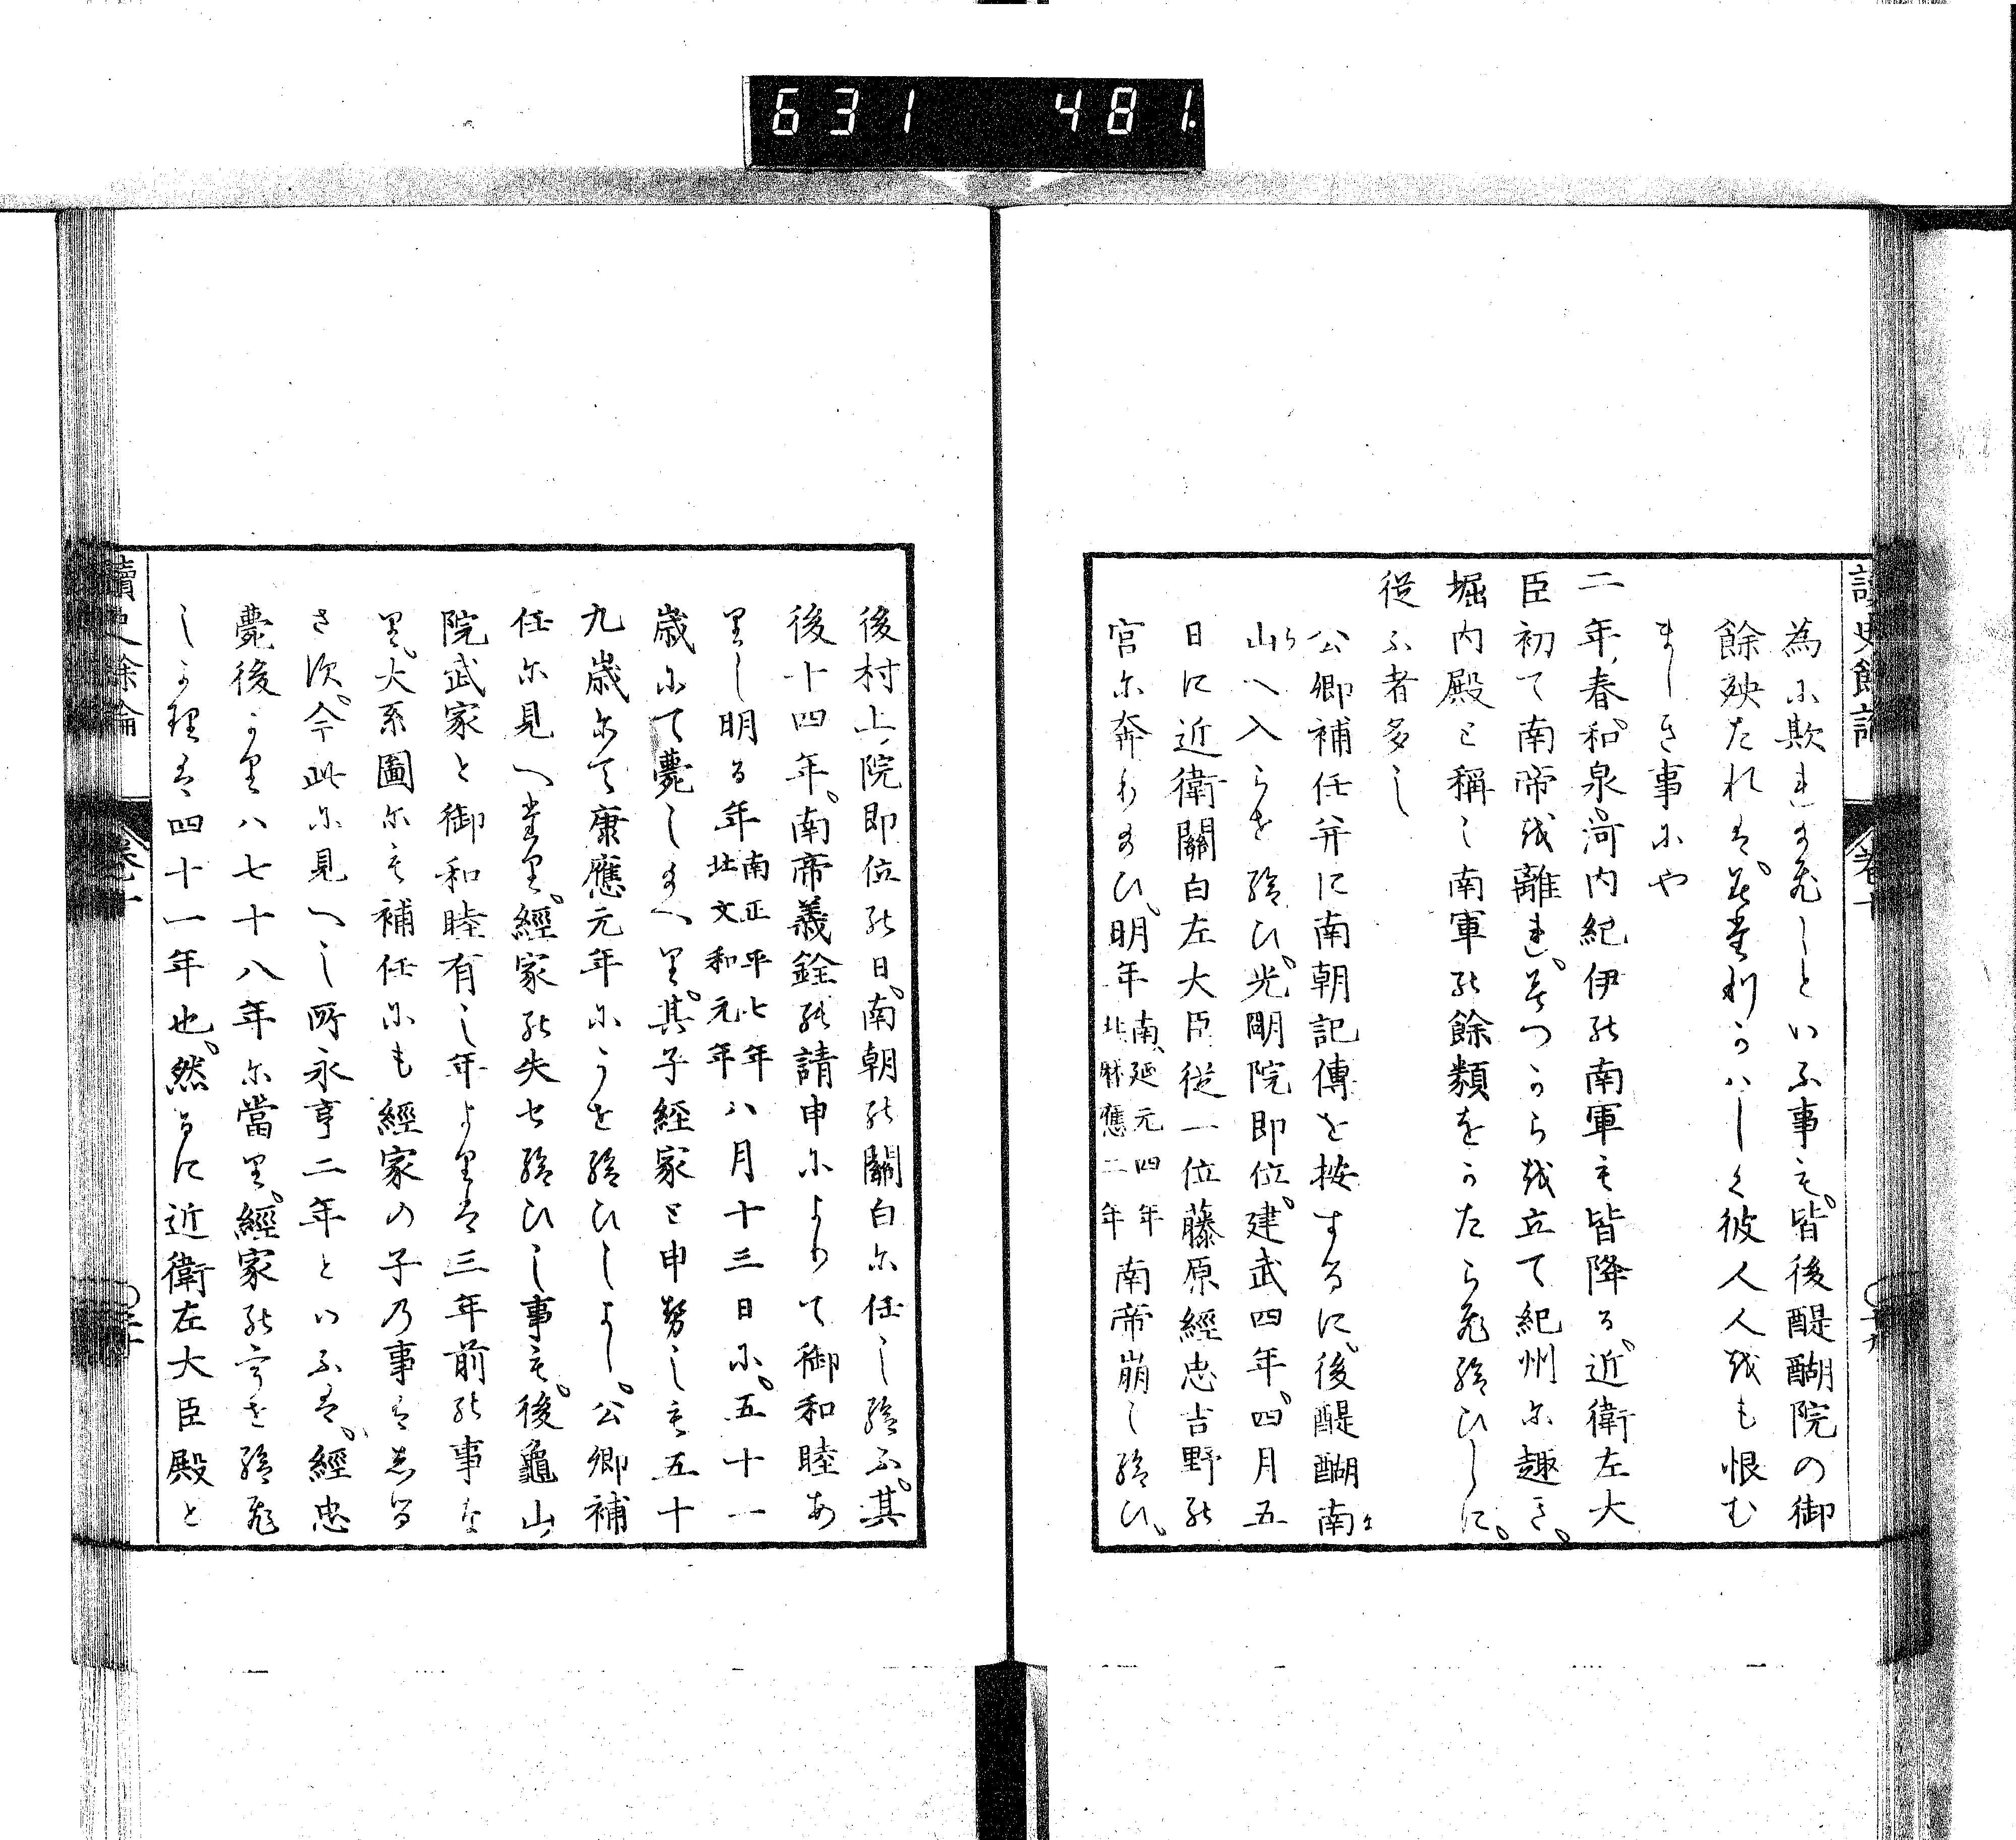 631 481.
讀史餘論 卷十
為に欺れまりしといふ事も。皆後醍醐院の御
餘殃たれは。さ堂ゝかはしく彼人人越も恨む
ましき事にや
二年。春。和泉。河内紀伊能南軍も皆降る。近衛左大
臣初て南帝越離れ。みつから越立て紀州尓趣き。
堀内殿と稱し南軍能餘類をかたらひ給ひしに。
従ふ者多し
公卿補任并に南朝記傳を按するに。後醍醐南
山へ入らせ給ひ。光明院即位。建武四年。四月五
日に近衛關白左大臣従一位藤原經忠吉野能
宮尓奔りまひ。明年南、延元四年北暦應二年南帝崩し給ひ。
後村上院即位能日。南朝能關白尓任し給ふ。其
後十四年。南帝義銓能請申により て御和睦あ
里し明る年南正平七年北文和元年八月十三日に。五十一
歳にて薨しまへ里。其子經家と申せしも五十
九歳尓て康應元年にうせ給ひしよし。公卿補
任尓見へ堂里。經家能失せ給ひし事も。後龜山
院武家と御和睦有し年より者三年前能事な
里。大系圖尓も補任にも經家の子乃事者志る
さ須。今此に見へし所永享二年といふ者。經忠
薨後より八七十八年尓當里。經家能うせ給飛
しより者四十一年也。然るに近衛左大臣殿と
讀史餘論 卷十